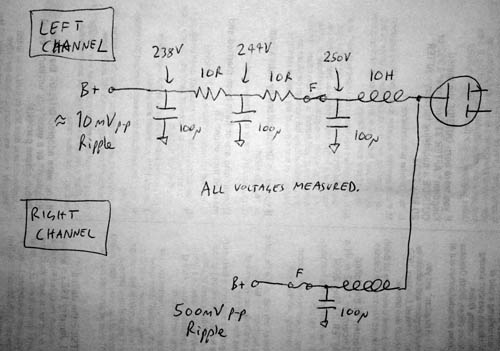 LEFT
CHANNEL
238V
244V
250V
B+
10R
10R
F
10H
≈ 10mVp-p
Ripple
100µ
100µ
100µ
ALL VOLTAGES MEASURED.
RIGHT
CHANNEL
B+
F
500mV p-p
Ripple
100µ